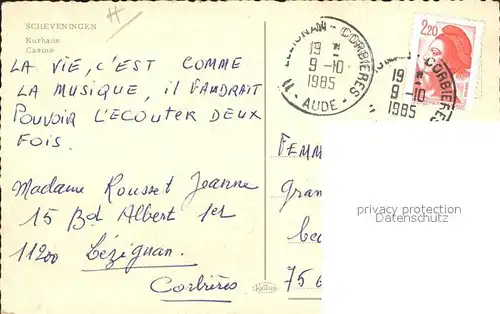 SCHEVENINGEN
Kurhaus
Casino
LA VIE, C'EST COMME
LA MUSIQUE, il FAUDRAIT
POUVOIR L'ECOUTER DEUX
FOIS.
Madame Rousset Jeanne
15 Bd Albert 1er
11200 Lézignan.
Corbières
CORBIERES
19 H
9-10
1985
11 AUDE
2,20
CORBIERES
19
9-10
1985
FEMM
Gran
75
privacy protection
Datenschutz